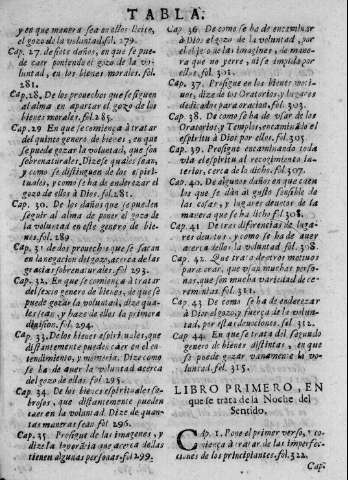 TABLA.
y en que manera sea en ellos licito,
el gozo de la voluntad. fol. 279.
Cap. 27. de siete daños, en que se pue-
de caer poniendo el gozo de la vo-
luntad, en los bienes morales. fol.
281.
Cap. 28. De los prouechos que se siguen
al alma en apartar el gozo de los
bienes morales. fol. 285.
Cap. 29 En que se comiença à tratar
del quinto genero de bienes, en que
se puede gozar la voluntad, que son
sobrenaturales. Dize se quales sean,
y como se distinguen de los espiri-
tuales, y como se ha de enderezar el
gozo de ellos à Dios. fol. 281.
Cap. 30. De los daños que se pueden
seguir al alma de poner el gozo de
la voluntad en este genero de bie-
nes. fol. 289
Cap. 31. de los prouechos que se sacan
en la negacion del gozo, acerca de las
gracias sobrenaturales. fol 293.
Cap. 32. En que se comiença à tratar
del sexto genero de bienes, de que se
puede gozar la voluntad, dize qua-
les sean, y haze de ellos la primera
diuision. fol. 294.
Cap. 33. De los bienes espirituales, que
distintamente pueden caer en el en-
tendimiento, y memoria. Dize como
se ha de auer la voluntad acerca
del gozo de ellas fol. 295.
Cap. 34. De los bienes espirituales sa-
brosos, que distintamente pueden
caer en la voluntad. Dize de quan-
tas maneras sean fol 296.
Cap. 35. Prosigue de las imagenes, y
dize la ignorācia que acerca de las
tienen algunas personas. fol 299.
Cap 36. De como se ha de encaminar
à Dios el gozo de la voluntad, por
el objeto de las imagines, de mane-
ra que no yerre, ni se impida por
ellas. fol. 301.
Cap. 37. Prosigue en los bienes moti-
uos, dize de los Oratorios, y lugares
dedicados para oracion, fol. 303.
Cap. 38. De como se ha de vsar de los
Oratorios, y Templos, encaminādo el
espiritu à Dios por ellos. fol. 305
Cap. 39. Prosigue encaminando toda
via el espiritu al recogimiento in-
terior, cerca de lo dicho. fol. 307.
Cap. 40. De algunos daños en que caen
los que se dàn al gusto sensible de
las cosas, y lugares deuotos de la
manera que se ha dicho fol 308.
Cap. 41 De tres diferencias de luga-
res deuotos, y como se ha de auer
acerca dellos la voluntad. fol. 308.
Cap. 42. Que trata de otros motiuos
para orar, que vsan muchas perso-
nas, que son mucha variedad de ce-
remonias. fol. 311.
Cap. 43 De como se ha de enderezar
à Dios el gozo, y fuerça de la volun-
tad, por estas deuociones. fol. 312.
Cap. 44. En que se trata del segundo
genero de bienes distintos, en que
se puede gozar vanamente la vo-
luntad. fol. 315.
LIBRO PRIMERO, EN
que se trata de la Noche del
Sentido.
Cap. 1. Pone el primer verso, y co-
miença à tratar de las imperfec-
ciones de los principiantes. fol. 322.
Cap.